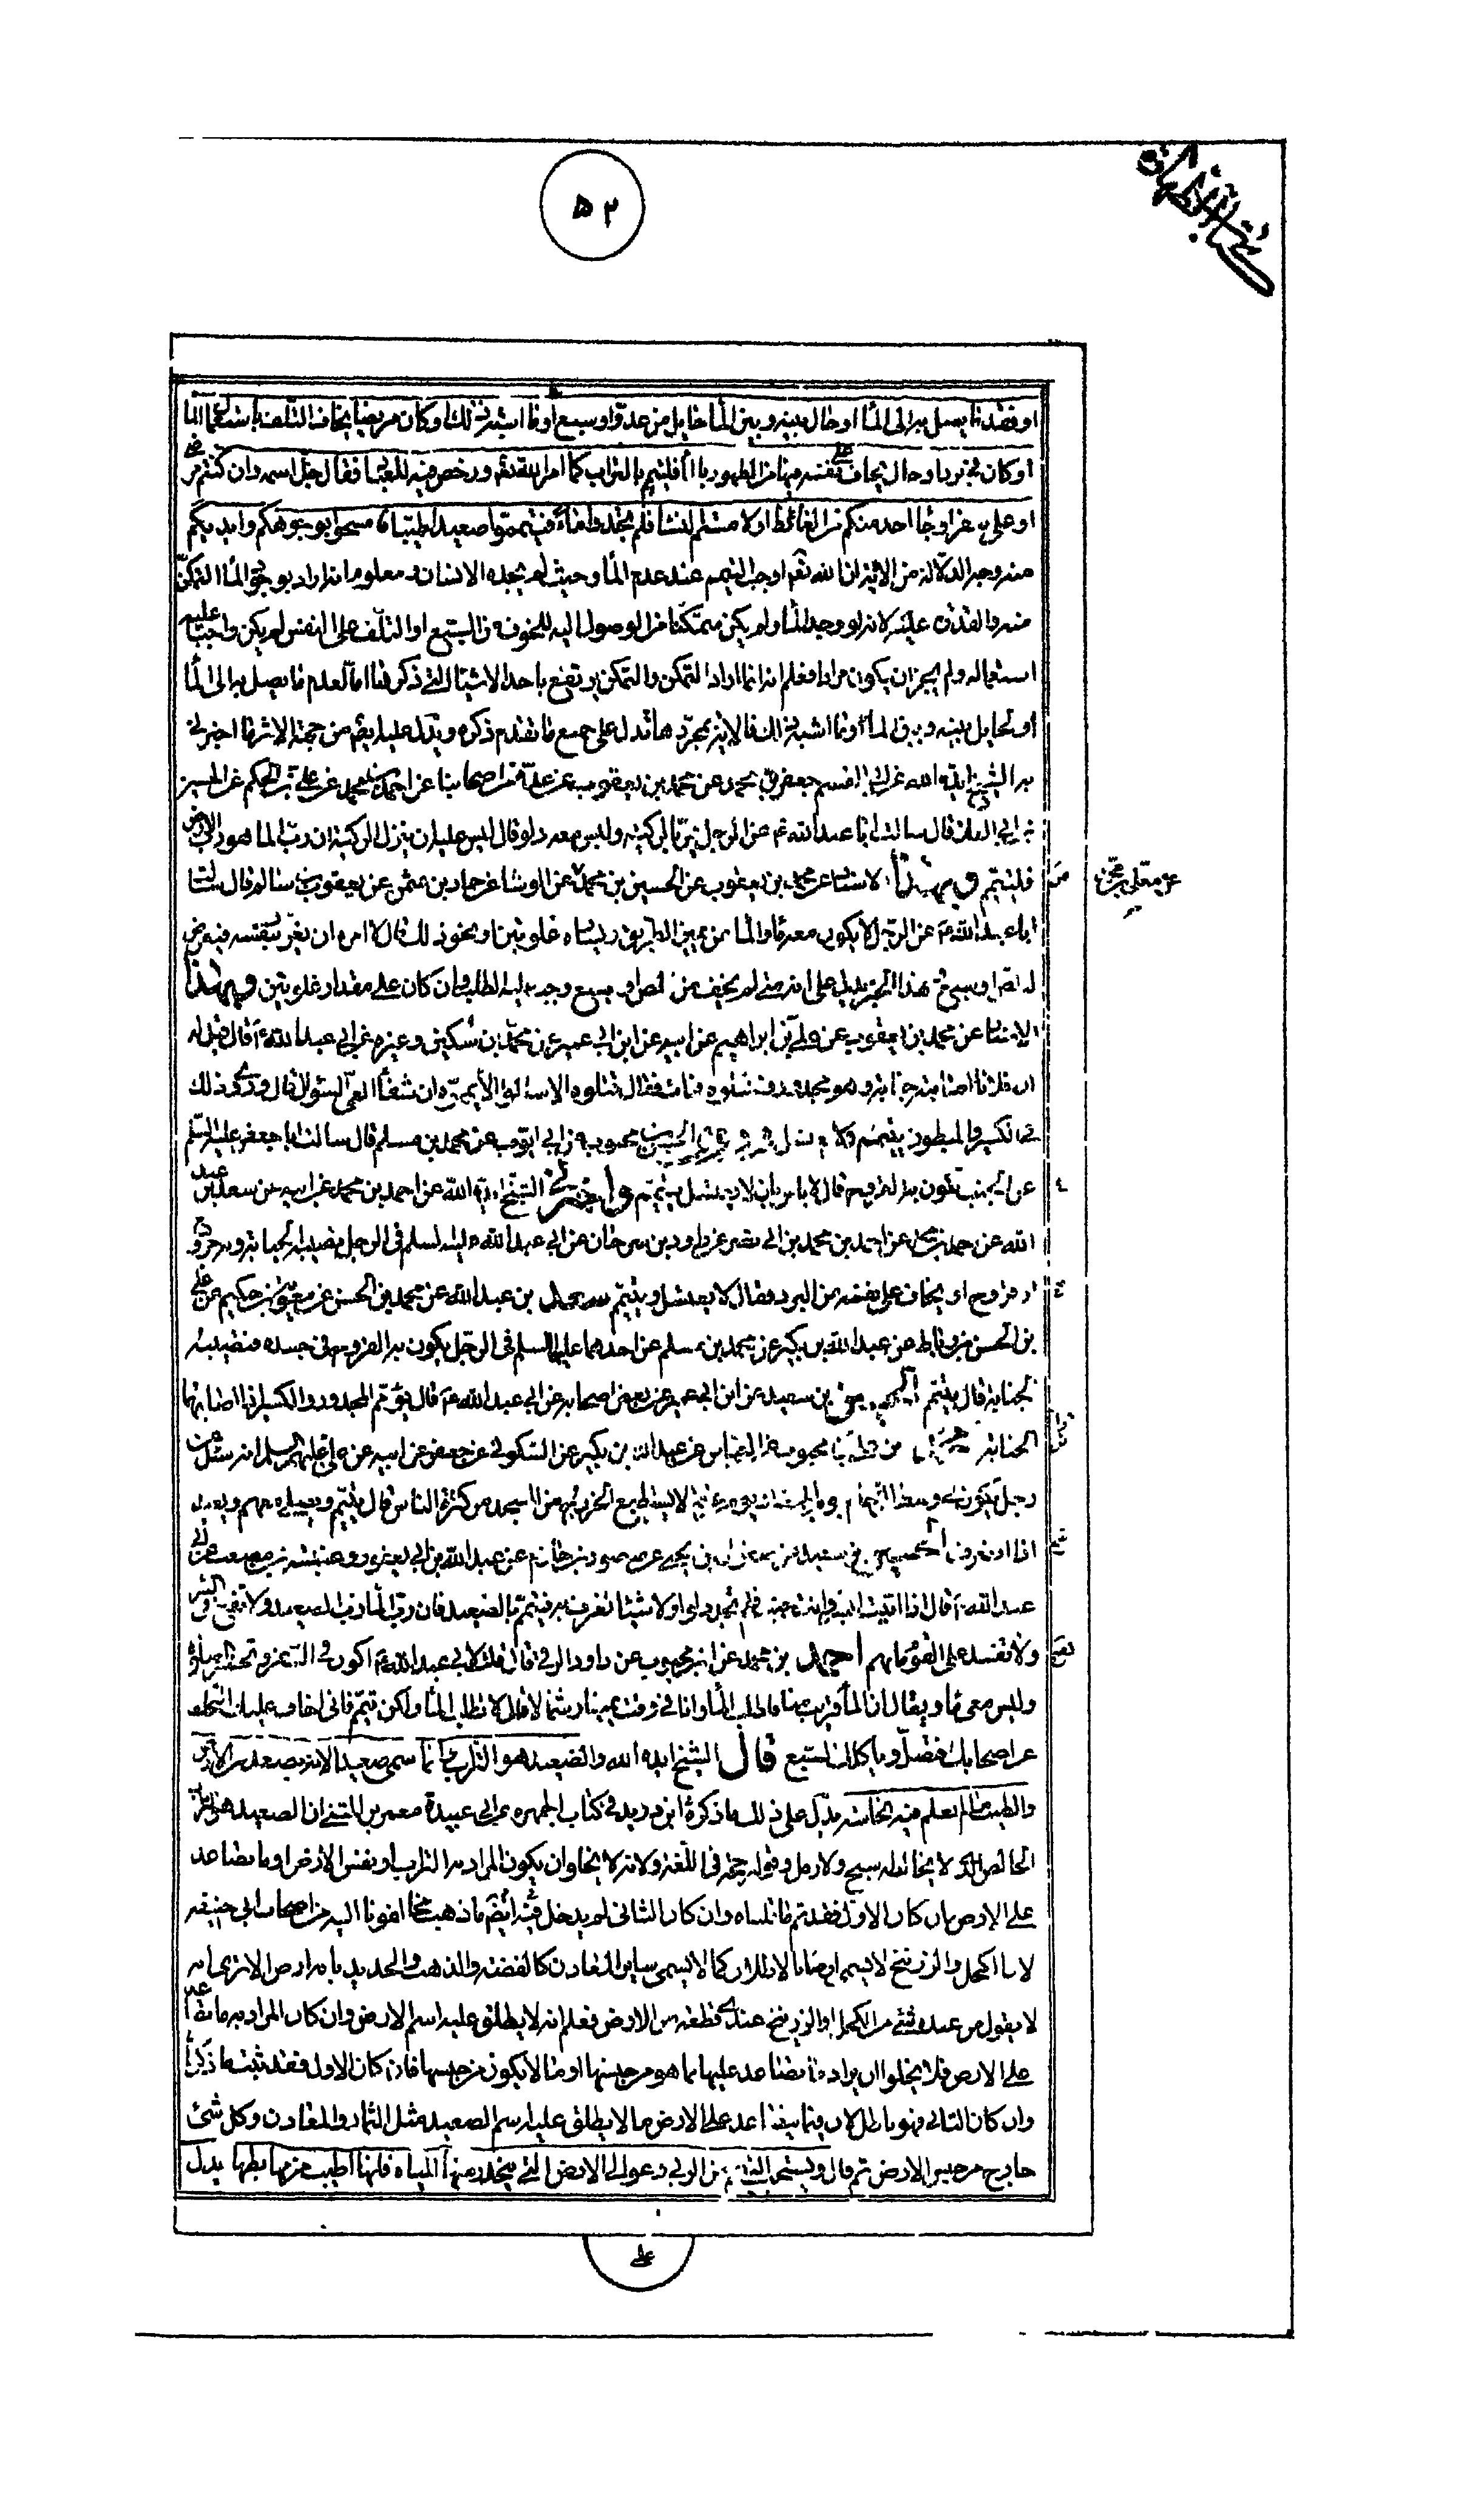 كتاب الطهارة
٥٢
او فقد ما يصل به الى الماء او حال بينه وبين الماء حايل من عدو او سبع او ما اشبه ذلك او كان مريضا يخاف التلف باستعمال الماء
او كان في برد او حال يخاف على نفسه فيها من الطهور بالماء فليتيمم بالتراب كما امر الله تعالى ورخص فيه للعباد فقال جل اسمه وان كنتم مرضى
او على سفر او جاء احد منكم من الغائط او لامستم النساء فلم تجدوا ماء فتيمموا صعيدا طيبا فامسحوا بوجوهكم وايديكم
منه وجه الدلالة من الاية ان الله تعالى اوجب التيمم عند عدم الماء وحيث لم يجده الانسان ومعلوم انه اراد بوجود الماء التمكن
منه والقدرة عليه لانه لو وجد الماء ولم يكن متمكنا من الوصول اليه للخوف من السبع او التلف على النفس لم يكن واجبا عليه
استعماله ولم يجز ان يكون مرادا فعلم انه انما اراد التمكن والتمكن يرتفع باحد الاشياء التي ذكرناها اما لعدم ما يصل به الى الماء
او لحايل بينه وبين الماء او ما اشبه ذلك فالاية بمجردها تدل على جميع ما تقدم ذكره ويدل عليه ايضا من جهة الاثر ما اخبرني
به الشيخ ايده الله عن ابي القسم جعفر بن محمد عن محمد بن يعقوب عن عدة من اصحابنا عن احمد بن محمد عن علي بن الحكم عن الحسين
بن ابي العلا قال سالت ابا عبد الله ع عن الرجل يمر بالركية وليس معه دلو قال ليس عليه ان ينزل الركية ان رب الماء هو رب الارض
فليتيمم وبهذا الاسناد عن محمد بن يعقوب عن الحسين بن محمد عن الوشا عن حماد بن عثمن عن يعقوب بن سالم قال سالت
عن معلى بن محمد
ابا عبد الله ع عن الرجل لا يكون معه ماء والماء عن يمين الطريق ويساره غلوتين او نحو ذلك قال لا امره ان يغرر بنفسه فيعرض
له لص او سبع فهذا الخبر يدل على انه متى لم يخف من لص او سبع وجب عليه الطلب وان كان على مقدار غلوتين وبهذا
الاسناد عن محمد بن يعقوب عن علي بن ابراهيم عن ابيه عن ابن ابي عمير عن محمد بن سكين وغيره عن ابي عبد الله ع قال قيل له
ان فلانا اصابته جنابة وهو مجدور فغسلوه فمات فقال قتلوه الا سالوا الا يمموه ان شفاء العي السؤال قال وروى ذلك
في الكسير والمبطون يتيمم ولا يغتسل محبوب عن ابي ايوب عن محمد بن مسلم قال سالت ابا جعفر عليه السلم
عن الجنب تكون به القروح قال لا باس بان لا يغتسل يتيمم واخبرني الشيخ ايده الله عن احمد بن محمد عن ابيه عن سعد بن عبد
الله عن احمد بن محمد عن احمد بن محمد بن ابي نصر عن داود بن سرحان عن ابي عبد الله عليه السلم في الرجل تصيبه الجنابة وبه جروح
او قروح او يخاف على نفسه من البرد فقال لا يغتسل ويتيمم سعد بن عبد الله عن محمد بن الحسين عن معوية بن حكيم عن علي
بن الحسن بن رباط عن عبد الله بن بكير عن محمد بن مسلم عن احدهما عليهما السلم في الرجل يكون به القروح في جسده فتصيبه
الجنابة قال يتيمم الحسين بن سعيد عن ابن ابي عمير عن بعض اصحابه عن ابي عبد الله ع قال يؤمم المجدور والكسير اذا اصابتهما
الجنابة محبوب عن العباس عن عبد الله بن بكير عن السكوني عن جعفر عن ابيه عن علي عليهم السلم انه سئل عن
رجل يكون في وسط الزحام يوم الجمعة لا يستطيع الخروج من المسجد من كثرة الناس قال يتيمم ويصلي معهم ويعيد
اذا انصرف الحسين بن سعيد عن صفوان بن يحيى عن منصور بن حازم عن عبد الله بن ابي يعفور وعنبسة بن مصعب عن ابي
عبد الله ع قال اذا اتيت البئر وانت جنب فلم تجد دلوا ولا شيئا تغرف به فتيمم بالصعيد فان رب الماء رب الصعيد ولا تقع في البئر
ولا تفسد على القوم ماءهم احمد بن محمد عن ابن محبوب عن داود الرقي قال قلت لابي عبد الله ع اكون في السفر وتحضر الصلوة
وليس معي ماء ويقال ان الماء قريب منا فاطلب الماء وانا في وقت يمينا وشمالا قال لا تطلب الماء ولكن تيمم فاني اخاف عليك التخلف
عن اصحابك فتضل وياكلك السبع قال الشيخ ايده الله والصعيد هو التراب وانما سمي صعيدا لانه يصعد من الارض
والطيب ما لم يعلم فيه نجاسة يدل على ذلك ما ذكره ابن دريد في كتاب الجمهرة عن ابي عبيدة معمر بن المثنى ان الصعيد هو التراب
الخالص الذي لا يخالطه سبخ ولا رمل وقوله حجة في اللغة ولانه لا يخلو ان يكون المراد به التراب او نفس الارض او ما تصاعد
على الارض فان كان الاول فقد تم ما قلناه وان كان الثاني لم يدخل فيه ايضا ما ذهب مخالفونا اليه من اصحاب ابي حنيفة
لان الكحل والزرنيخ لا يسمى ارضا بالاطلاق كما لا يسمى ساير المعادن كالفضة والذهب والحديد بانه ارض الا ترى انه
لا يقول من عنده شيء من الكحل او الزرنيخ عندي قطعة من الارض فعلم انه لا يطلق عليه اسم الارض وان كان المراد به ما تصاعد
على الارض فلا يخلو ان يراد ما تصاعد عليها مما هو من جنسها او مما لا يكون من جنسها فان كان الاول فقد ثبت ما ذكرناه
وان كان الثاني فهو باطل لان فيما يتصاعد على الارض ما لا يطلق عليه اسم الصعيد مثل الثمار والمعادن وكل شيء
خارج من جنس الارض ثم قال ويستحب التيمم من الربى وعوالي الارض التي تنحدر منها المياه فانها اطيب من مهابطها يدل
على